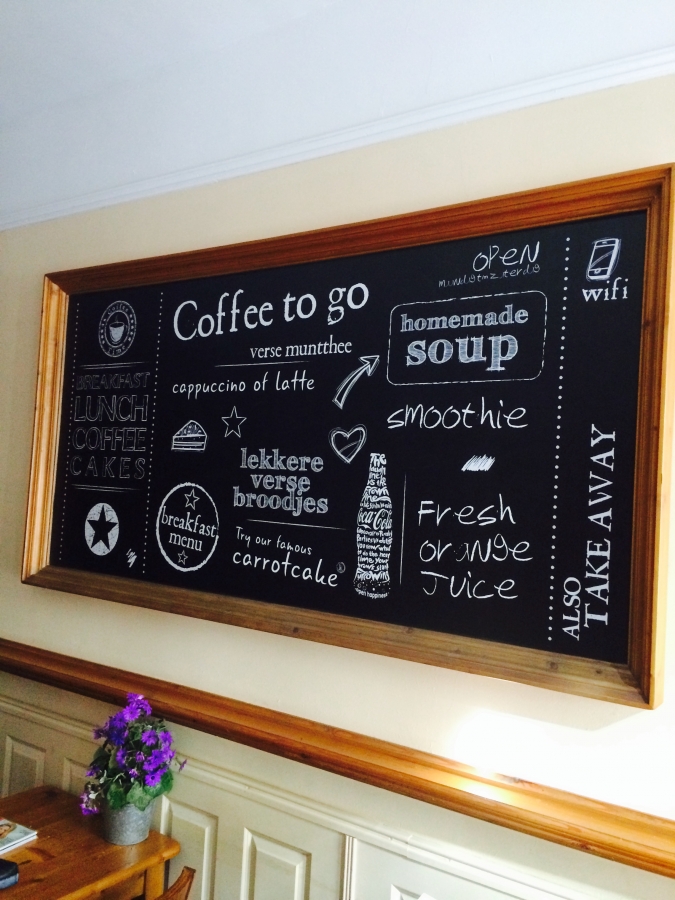 BREAKFAST
LUNCH
COFFEE
CAKES
Coffee to go
verse muntthee
cappuccino of latte
lekkere
verse
broodjes
breakfast
menu
Try our famous
carrotcake
Coca-Cola
open happiness
OPEN
homemade
soup
smoothie
Fresh
orange
Juice
wifi
ALSO
TAKE AWAY